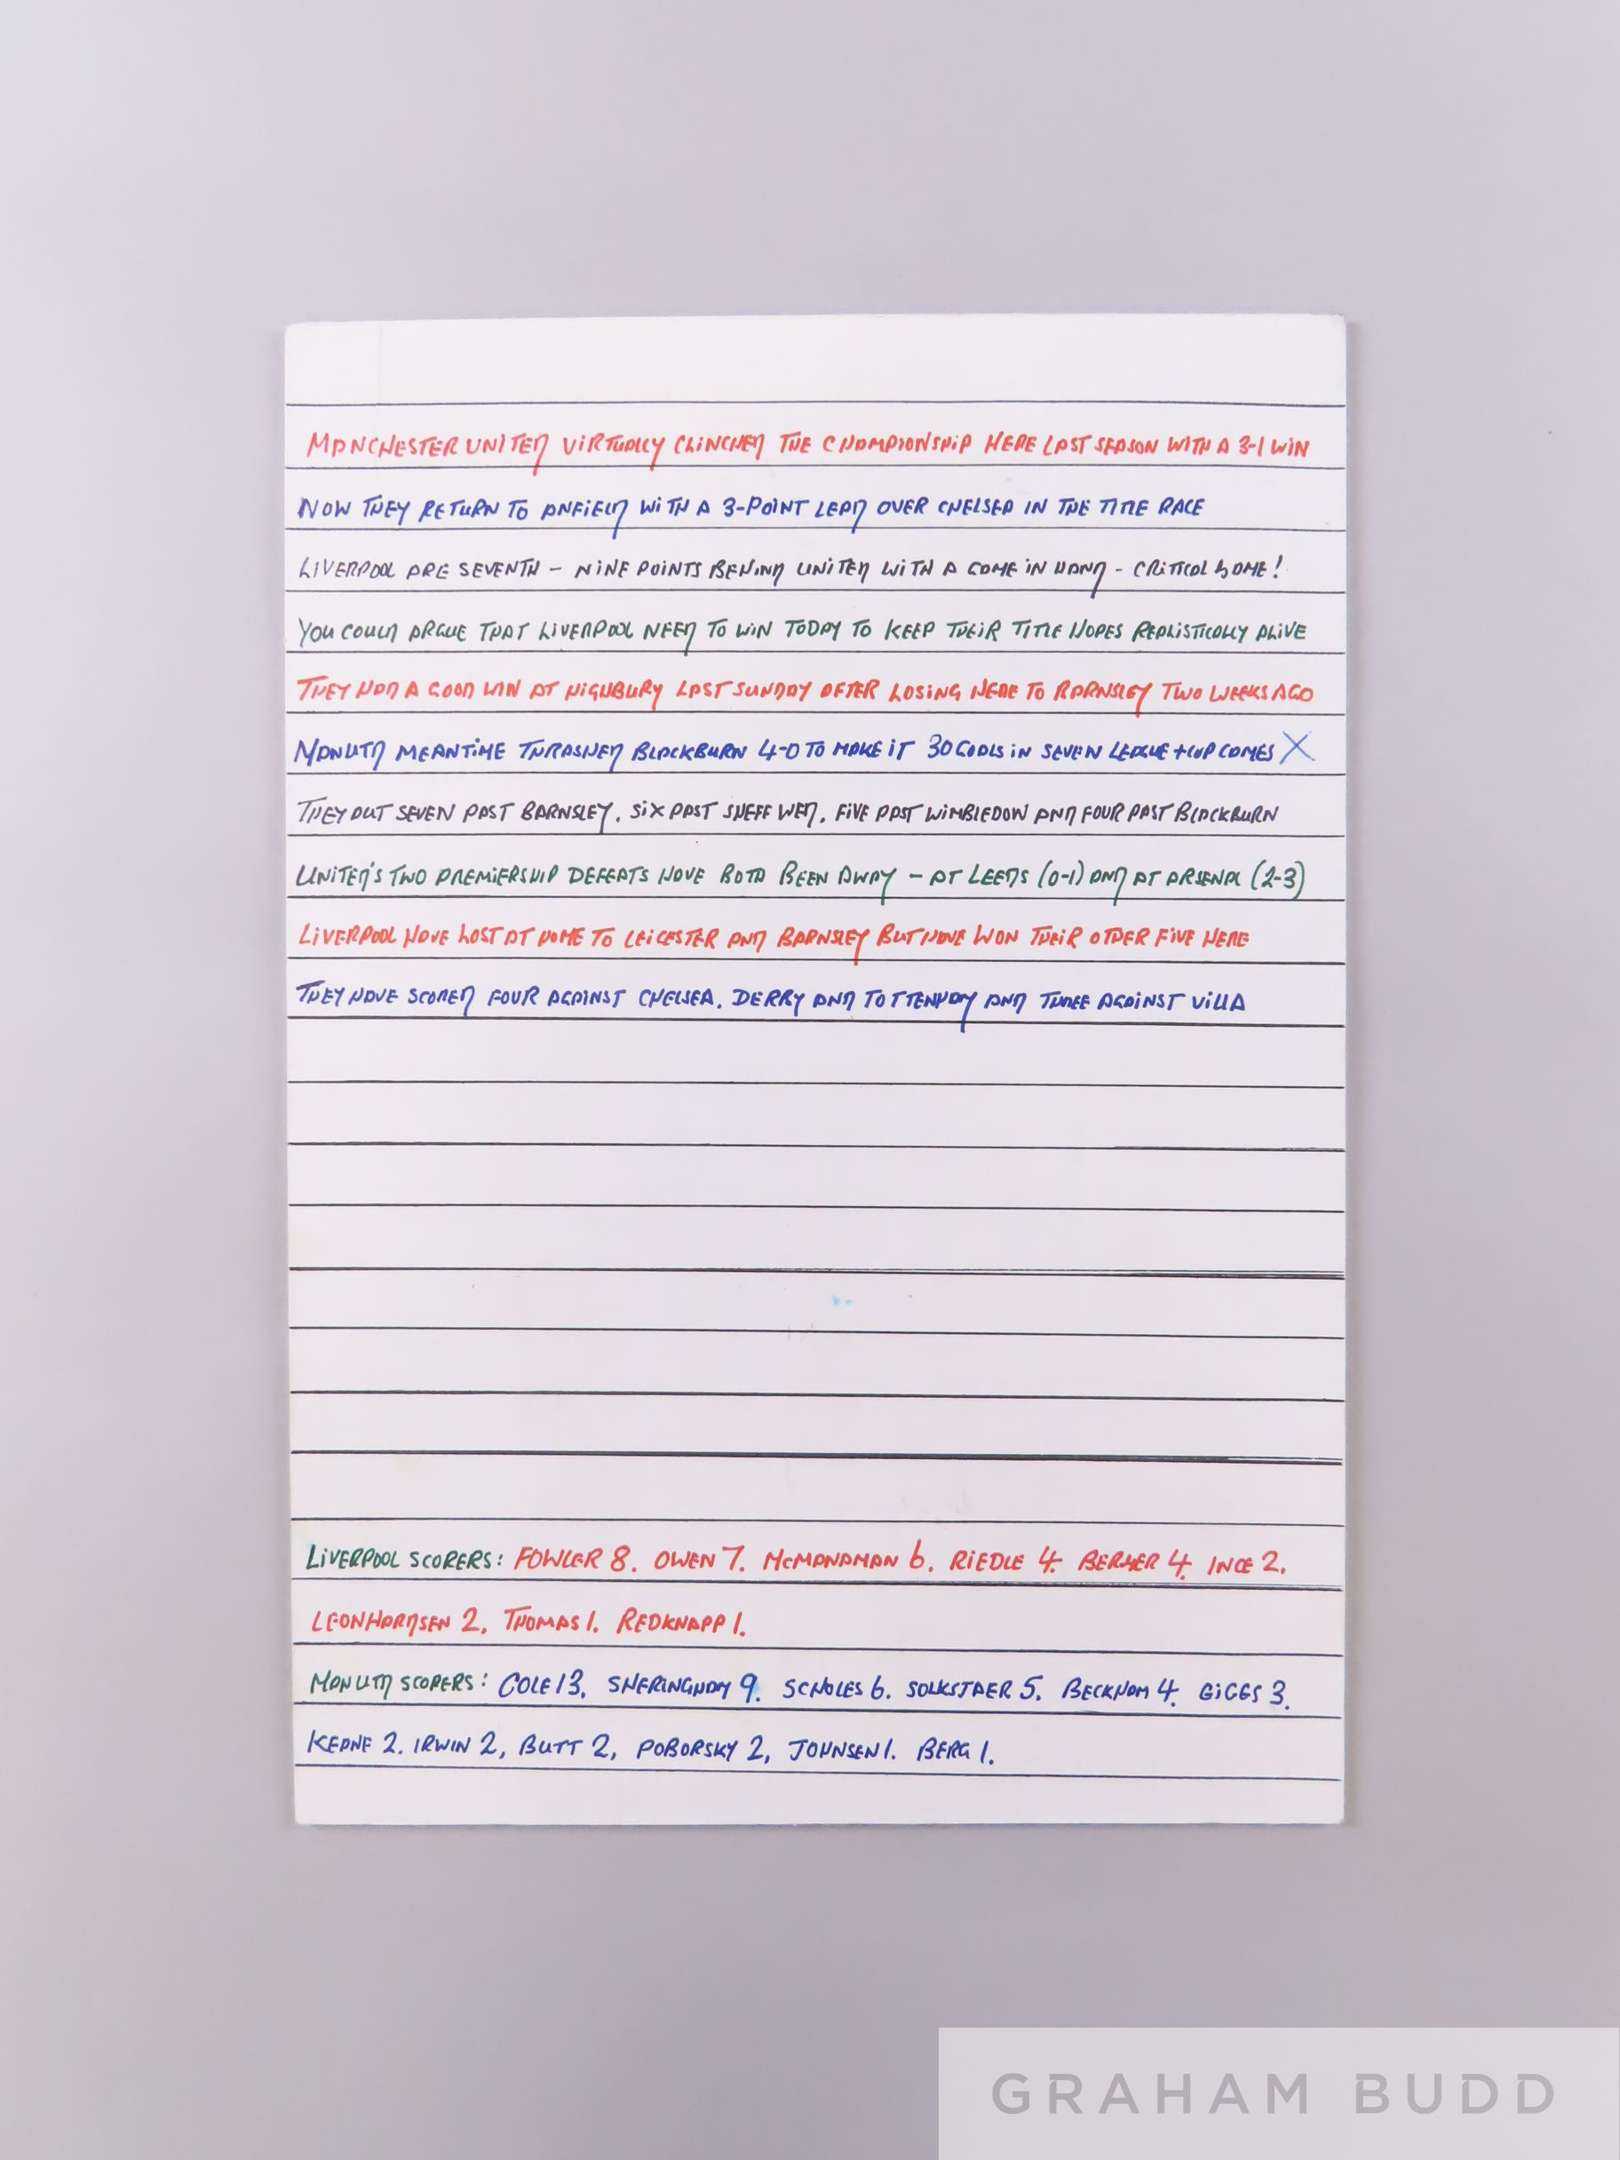 MANCHESTER UNITED VIRTUALLY CLINCHED THE CHAMPIONSHIP HERE LAST SEASON WITH A 3-1 WIN
NOW THEY RETURN TO ANFIELD WITH A 3-POINT LEAD OVER CHELSEA IN THE TITLE RACE
LIVERPOOL ARE SEVENTH - NINE POINTS BEHIND UNITED WITH A GAME IN HAND - CRITICAL GAME!
YOU COULD ARGUE THAT LIVERPOOL NEED TO WIN TODAY TO KEEP THEIR TITLE HOPES REALISTICALLY ALIVE
THEY HAD A GOOD WIN AT HIGHBURY LAST SUNDAY AFTER LOSING HERE TO BARNSLEY TWO WEEKS AGO
MAN UTD MEANTIME THRASHED BLACKBURN 4-0 TO MAKE IT 30 GOALS IN SEVEN LEAGUE + CUP GAMES X
THEY PUT SEVEN PAST BARNSLEY. SIX PAST SHEFF WED. FIVE PAST WIMBLEDON AND FOUR PAST BLACKBURN
UNITED'S TWO PREMIERSHIP DEFEATS HAVE BOTH BEEN AWAY - AT LEEDS (0-1) AND AT ARSENAL (2-3)
LIVERPOOL HAVE LOST AT HOME TO LEICESTER AND BARNSLEY BUT HAVE WON THEIR OTHER FIVE HERE
THEY HAVE SCORED FOUR AGAINST CHELSEA. DERRY AND TOTTENHAM AND THREE AGAINST VILLA
LIVERPOOL SCORERS: FOWLER 8. OWEN 7. McMANAMAN 6. RIEDLE 4. BERGER 4. INCE 2.
LEONHARDSEN 2. THOMAS 1. REDKNAPP 1.
MAN UTD SCORERS: COLE 13. SHERINGHAM 9. SCHOLES 6. SOLKSTAER 5. BECKHAM 4. GIGGS 3.
KEANE 2. IRWIN 2, BUTT 2, POBORSKY 2, JOHNSEN 1. BERG 1.
GRAHAM BUDD